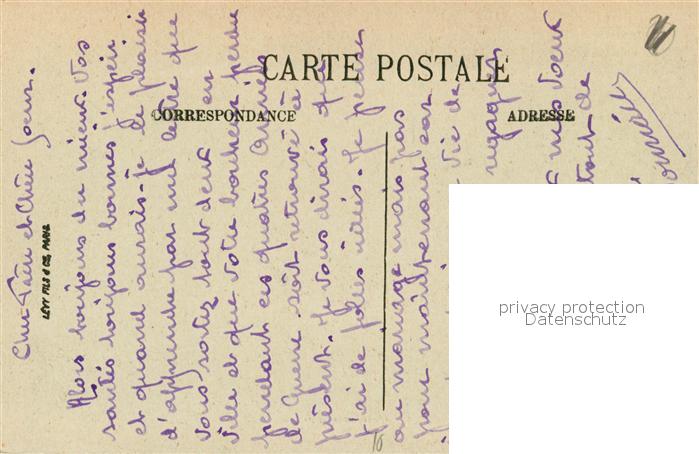 CARTE POSTALE
CORRESPONDANCE
ADRESSE
LÉVY FILS & CIE, PARIS
Cher Frère et Chère Soeur.
Alors toujours du mieux. Vos
santés toujours bonnes j'espère
et quand aurais-je le plaisir
d'apprendre par une lettre que
vous sortez tout deux en
ville et que votre bonheur perdu
pendant ces quatres années
de Guerre soit retrouvé à
présent. Je vous dirais que
j'ai de jolies vues. Je pense
au mariage mais pas
pour maintenant car
vie de
regagner
mes voeux
tout de
privacy protection
Datenschutz